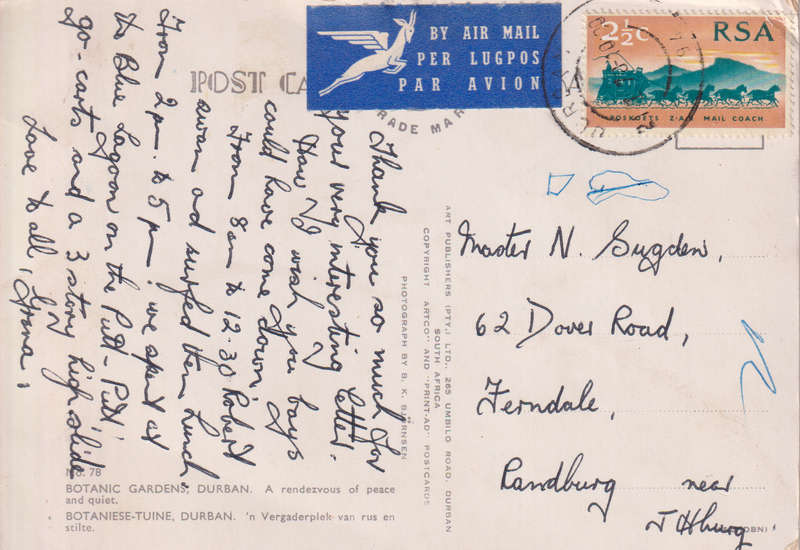 POST CA
TRADE MAR
BY AIR MAIL
PER LUGPOS
PAR AVION
2½c
RSA
POSKOETS Z·A·R MAIL COACH
Thank you so much for
your very interesting letter.
How I wish you boys
could have come down.
From 8am to 12.30 Robert
swam and surfed then lunch.
From 2pm. to 5pm. we spent at
the Blue Lagoon on the Putt-Putt
go-carts and a 3 story high slide
Love to all, Grona.
PHOTOGRAPH BY B. K. BJØRNSEN
COPYRIGHT "ARTCO" AND "PRINT-AD" POSTCARDS
SOUTH AFRICA
ART PUBLISHERS (PTY.) LTD., 265 UMBILO ROAD, DURBAN
Master N. Sugden,
62 Dover Road,
Ferndale,
Randburg near
J'Hburg
DBN)
No. 78
BOTANIC GARDENS, DURBAN. A rendezvous of peace
and quiet.
BOTANIESE-TUINE, DURBAN. 'n Vergaderplek van rus en
stilte.